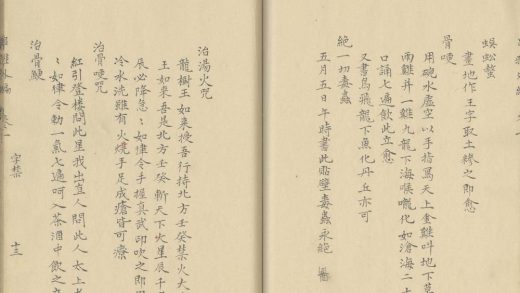 蜈蚣螫
畫地作王字取土糝之即愈
骨哽
用碗水虛空以手指寫天上金雞叫地下草
雞并一雞九龍下海喉嚨化如滄海二十
口誦七遍飲此立愈
又書鳥飛龍下魚化丹丘亦可
絕一切毒蟲
五月五日午時書此貼壁毒蟲永絕
治湯火咒
龍樹王如來授吾行持北方壬癸禁火大
王如來吾是北方壬癸斬天下火星辰千里
辰必降急〻如律令手握真武印吹之即用
冷水洗雖有火燒手足成瘡皆可療
治骨哽咒
紅引登樓問此里我出直人問此人太上老
〻如律令勅一氣七遍呵入茶酒中飲之立
治骨鯁
卷之
字禁
十三